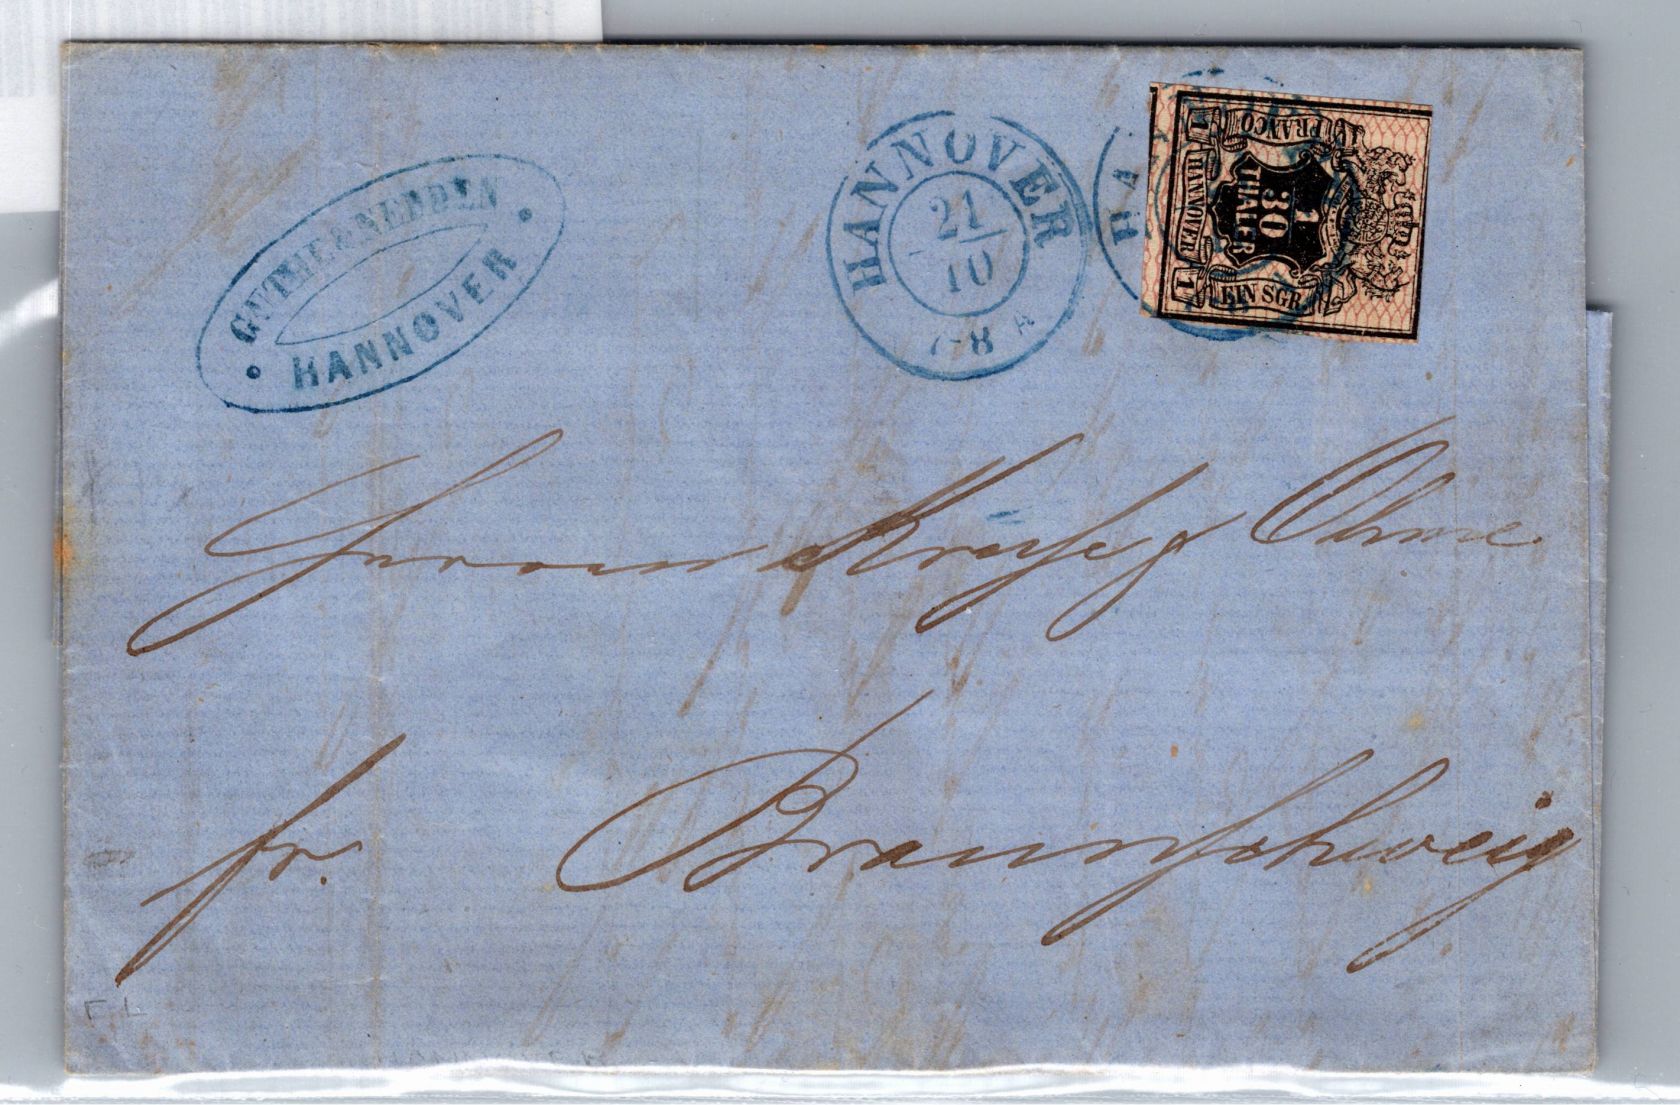 HANNOVER
21
10
7-8 A
HA
FRANCO
1 HANNOVER 1
1
30
THALER
EIN SGR.
GUTHE & NEDDEN
HANNOVER
Herren Ohme
fr. Braunschweig
F L